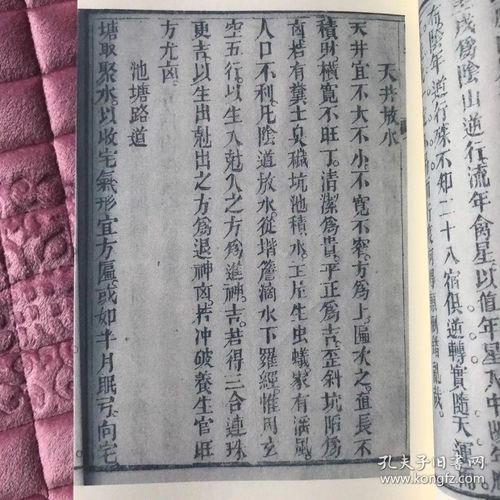 壬戌為陰山逆行流年禽星以值年星入中
有陰年逆行殊不知二十八宿俱逆轉實隨天運
天井放水
天井宜不大不小不寬不窄方為上匾次之直長不
積財橫寬不旺丁清潔為貴平正為吉歪斜坑陷為
凶若有糞土臭穢坑池積水主足生虫蟻家有瀋風
人口不利凡陰道放水從堦簷滴水下羅經惟用玄
空五行以生入尅入之方為進神吉若得三合連珠
更吉以生出尅出之方為退神凶若沖破養生官旺
方尤凶
池塘路道
塘取聚水以收宅氣形宜方匾或如半月眠弓向宅
孔夫子旧书网
www.kongfz.com